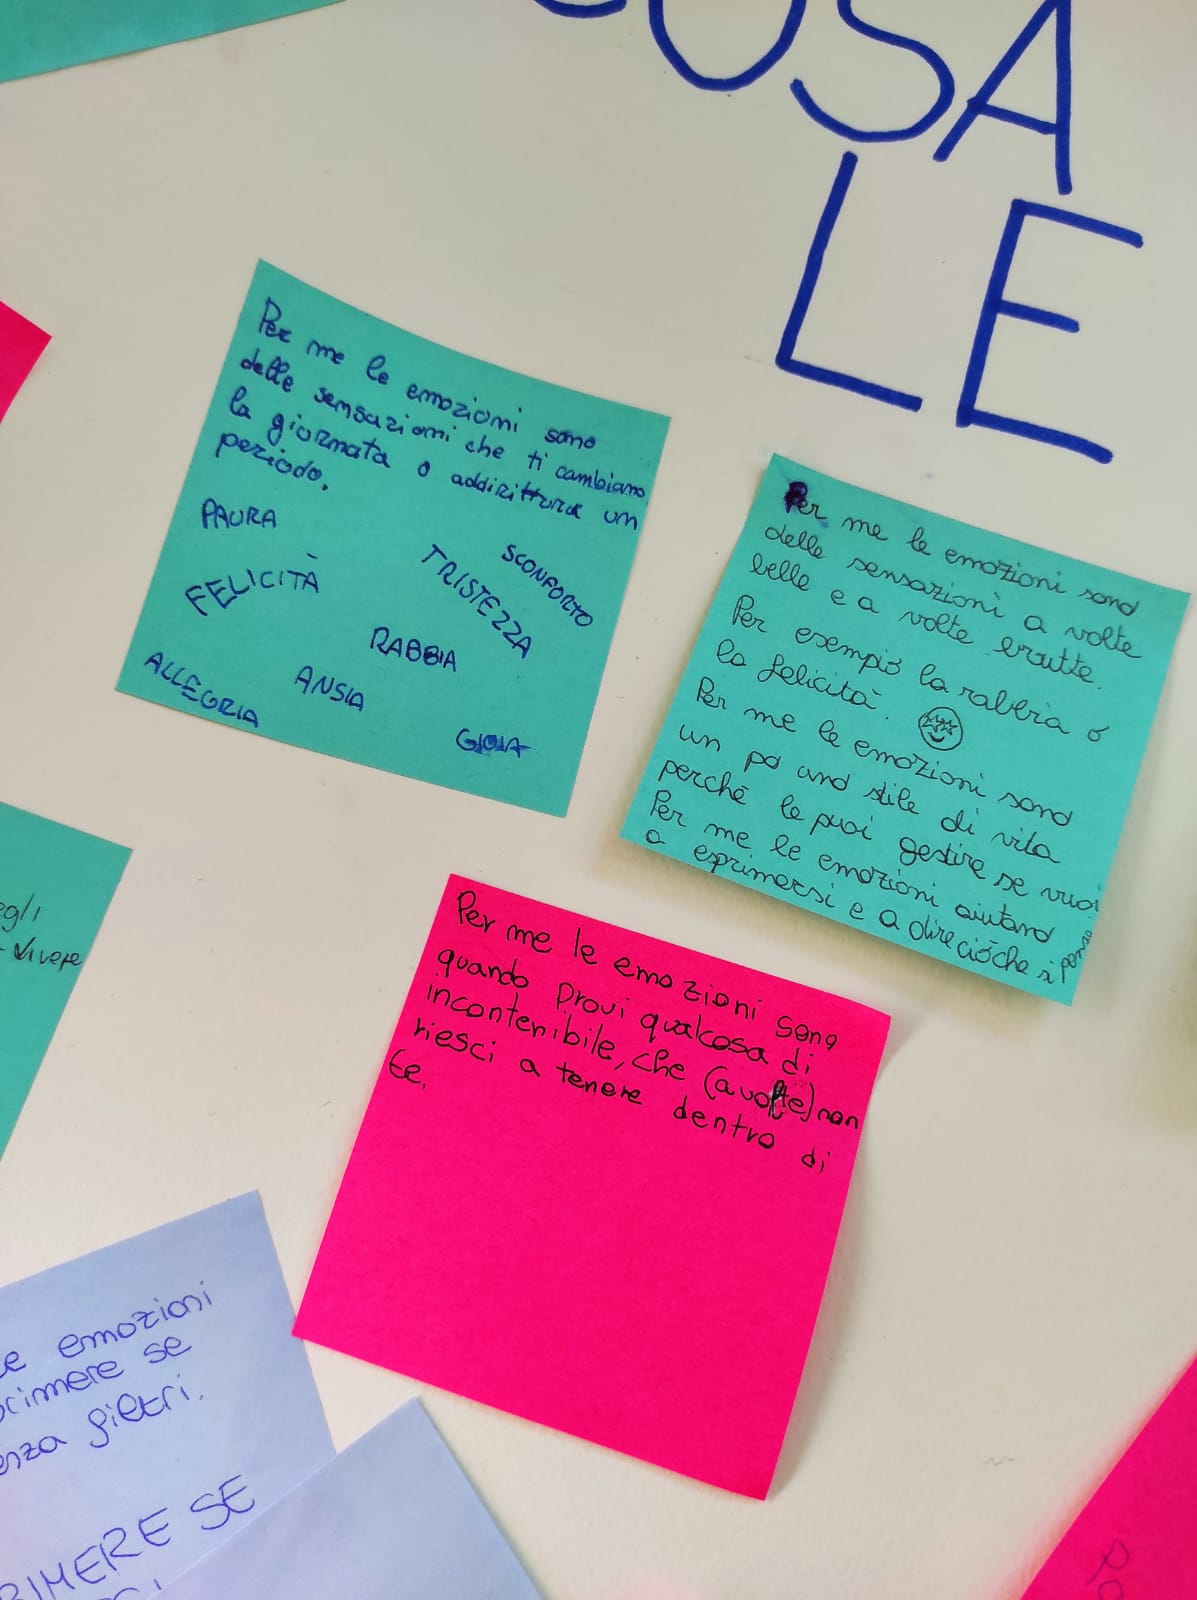 COSA
LE
Per me le emozioni sono
delle sensazioni che ti cambiano
la giornata o addirittura un
periodo.
PAURA
FELICITÀ
SCONFORTO
TRISTEZZA
RABBIA
ANSIA
ALLEGRIA
GIOIA
Per me le emozioni sono
delle sensazioni a volte
belle e a volte brutte.
Per esempio la rabbia o
la felicità.
Per me le emozioni sono
un po uno stile di vita
perché le puoi gestire se vuoi
Per me le emozioni aiutano
a esprimersi e a dire ciò che si pensa
Per me le emozioni sono
quando provi qualcosa di
incontenibile, che (a volte) non
riesci a tenere dentro di
te.
egli
vivere
emozioni
se
filtri.
SE